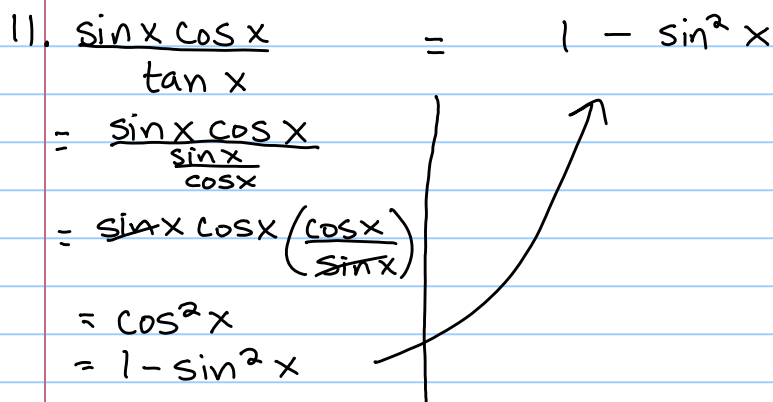 11. sin x cos x / tan x = 1 - sin² x
= sin x cos x / (sin x / cos x)
= sin x cos x (cos x / sin x)
= cos² x
= 1 - sin² x